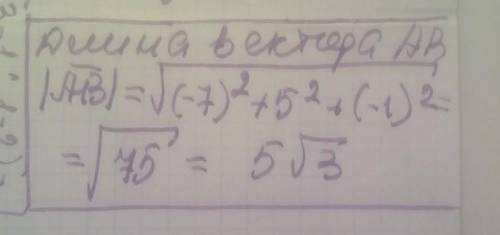 Длина вектора AB
|AB| = √(-7)² + 5² + (-1)² =
= √75 = 5√3